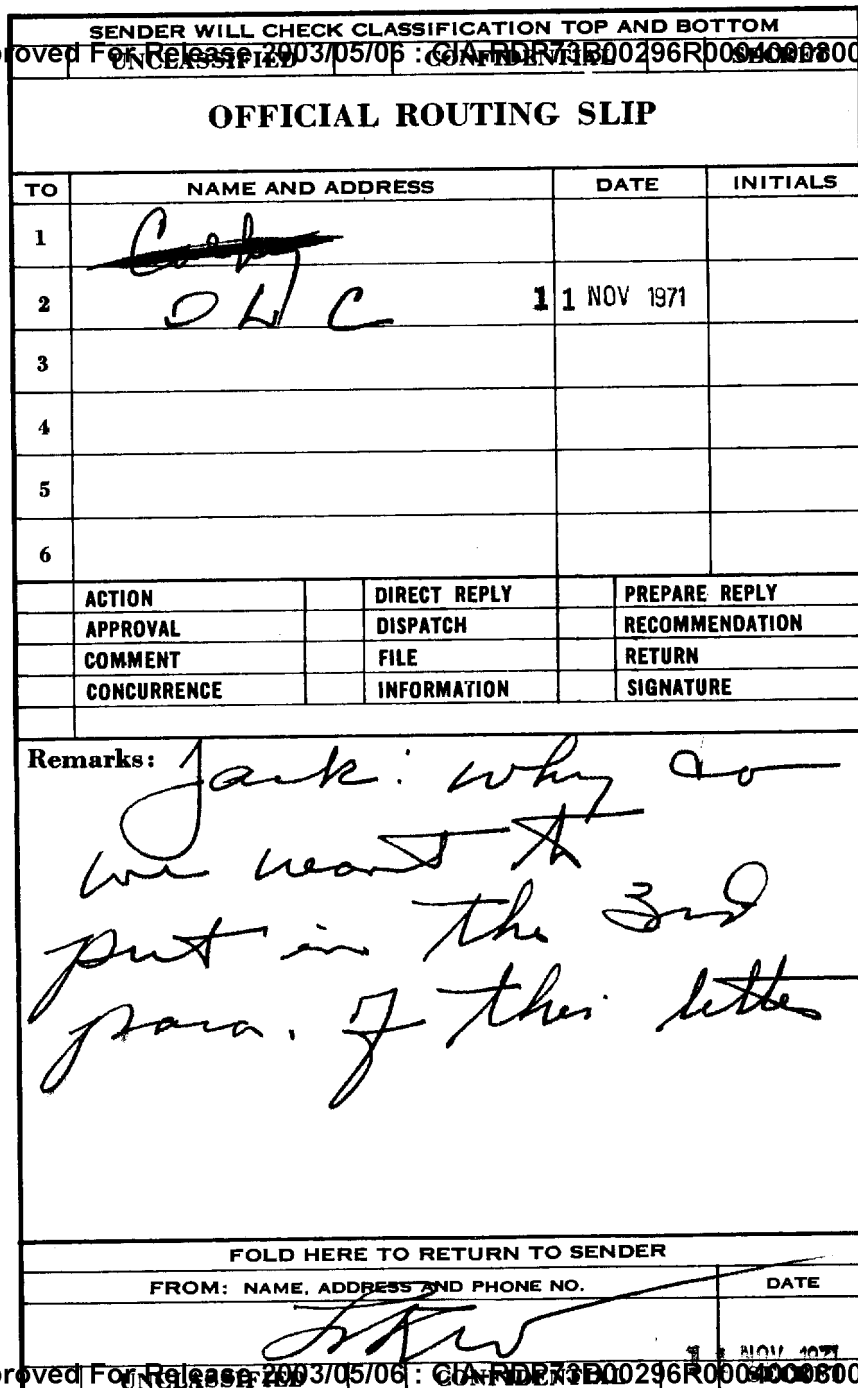 SENDER WILL CHECK CLASSIFICATION TOP AND BOTTOM
roved For Release 2003/05/06 : CIA-RDP73B00296R000400080
UNCLASSIFIED CONFIDENTIAL SECRET
OFFICIAL ROUTING SLIP
TO NAME AND ADDRESS DATE INITIALS
1
2 11 NOV 1971
3
4
5
6
ACTION DIRECT REPLY PREPARE REPLY
APPROVAL DISPATCH RECOMMENDATION
COMMENT FILE RETURN
CONCURRENCE INFORMATION SIGNATURE
Remarks: Jack: why do
we want to
put in the 3rd
para. of this letter
FOLD HERE TO RETURN TO SENDER
FROM: NAME, ADDRESS AND PHONE NO. DATE
NOV 1971
roved For Release 2003/05/06 : CIA-RDP73B00296R000400080
UNCLASSIFIED CONFIDENTIAL SECRET